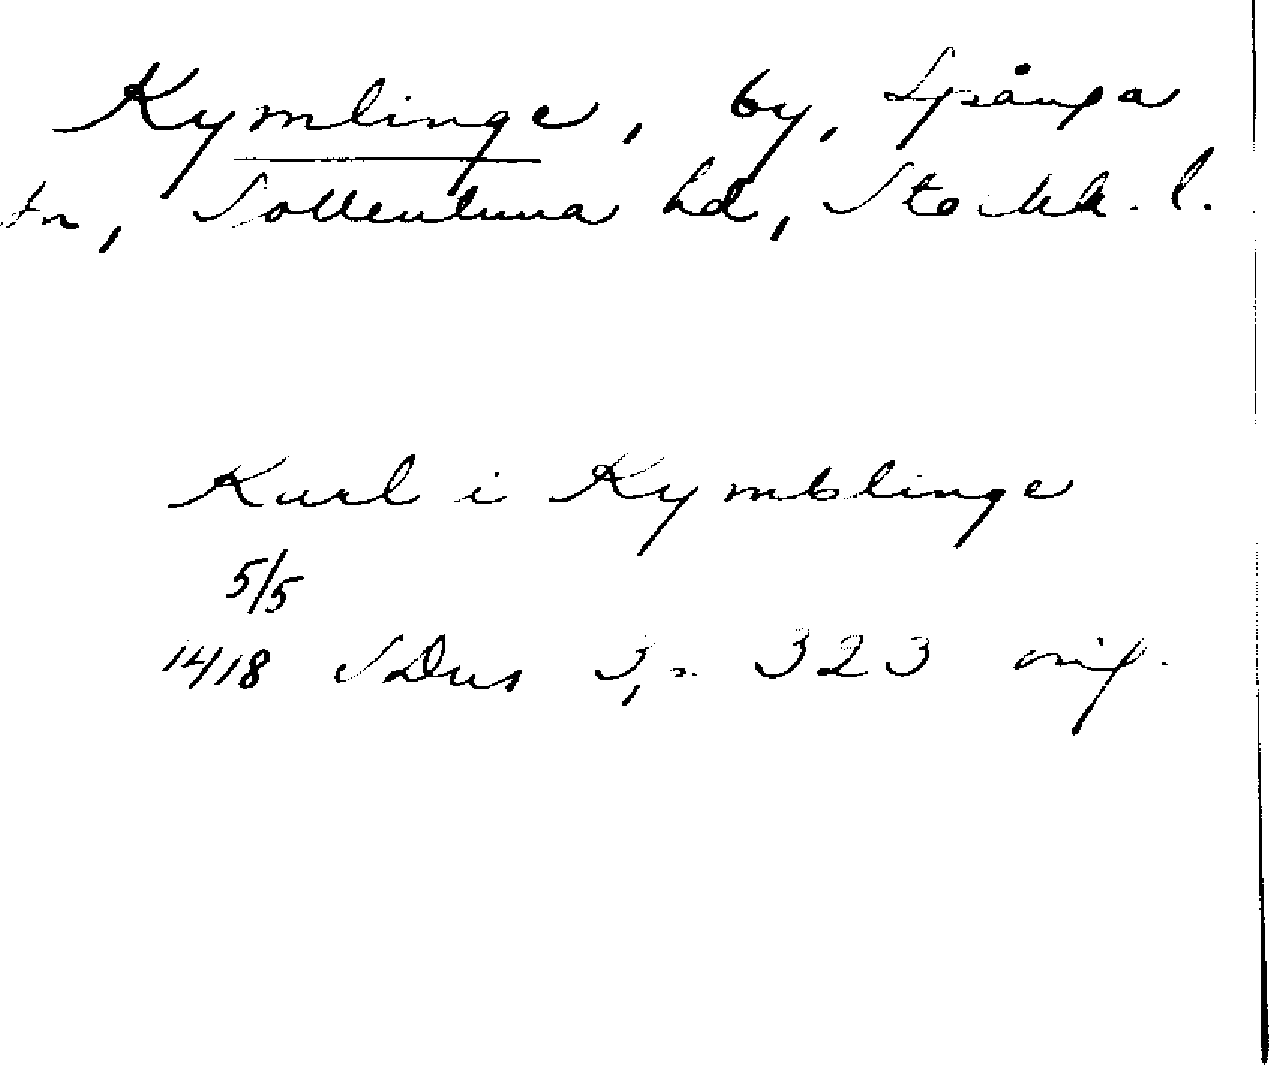 Kymlinge, by, Spånga
sn, Sollentuna hd, Stockh. l.
Karl i Kymblinge
5/5
1418 SDns 3, s. 323 orig.